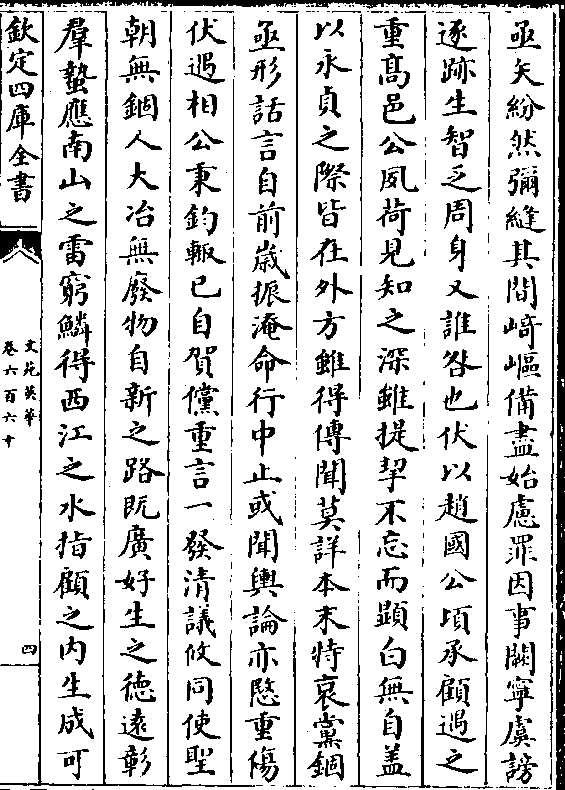 亟矢紛然彌縫其間﨑嶇備盡始慮罪因事闕寧虞謗
逐跡生智乏周身又誰咎也伏以趙國公頃承顧遇之
重髙邑公夙荷見知之深雖提挈不忘而顯白無自盖
以永貞之際皆在外方雖得傳聞莫詳本末特哀黨錮
亟形話言自前歳振淹命行中止或聞輿論亦愍重傷
伏遇相公秉鈞輙已自賀儻重言一發清議攸同使聖
朝無錮人大冶無廢物自新之路既廣好生之徳遠彰
羣蟄應南山之雷窮鱗得西江之水指顧之内生成可
欽定四庫全書
文苑英華
卷六百六十
四